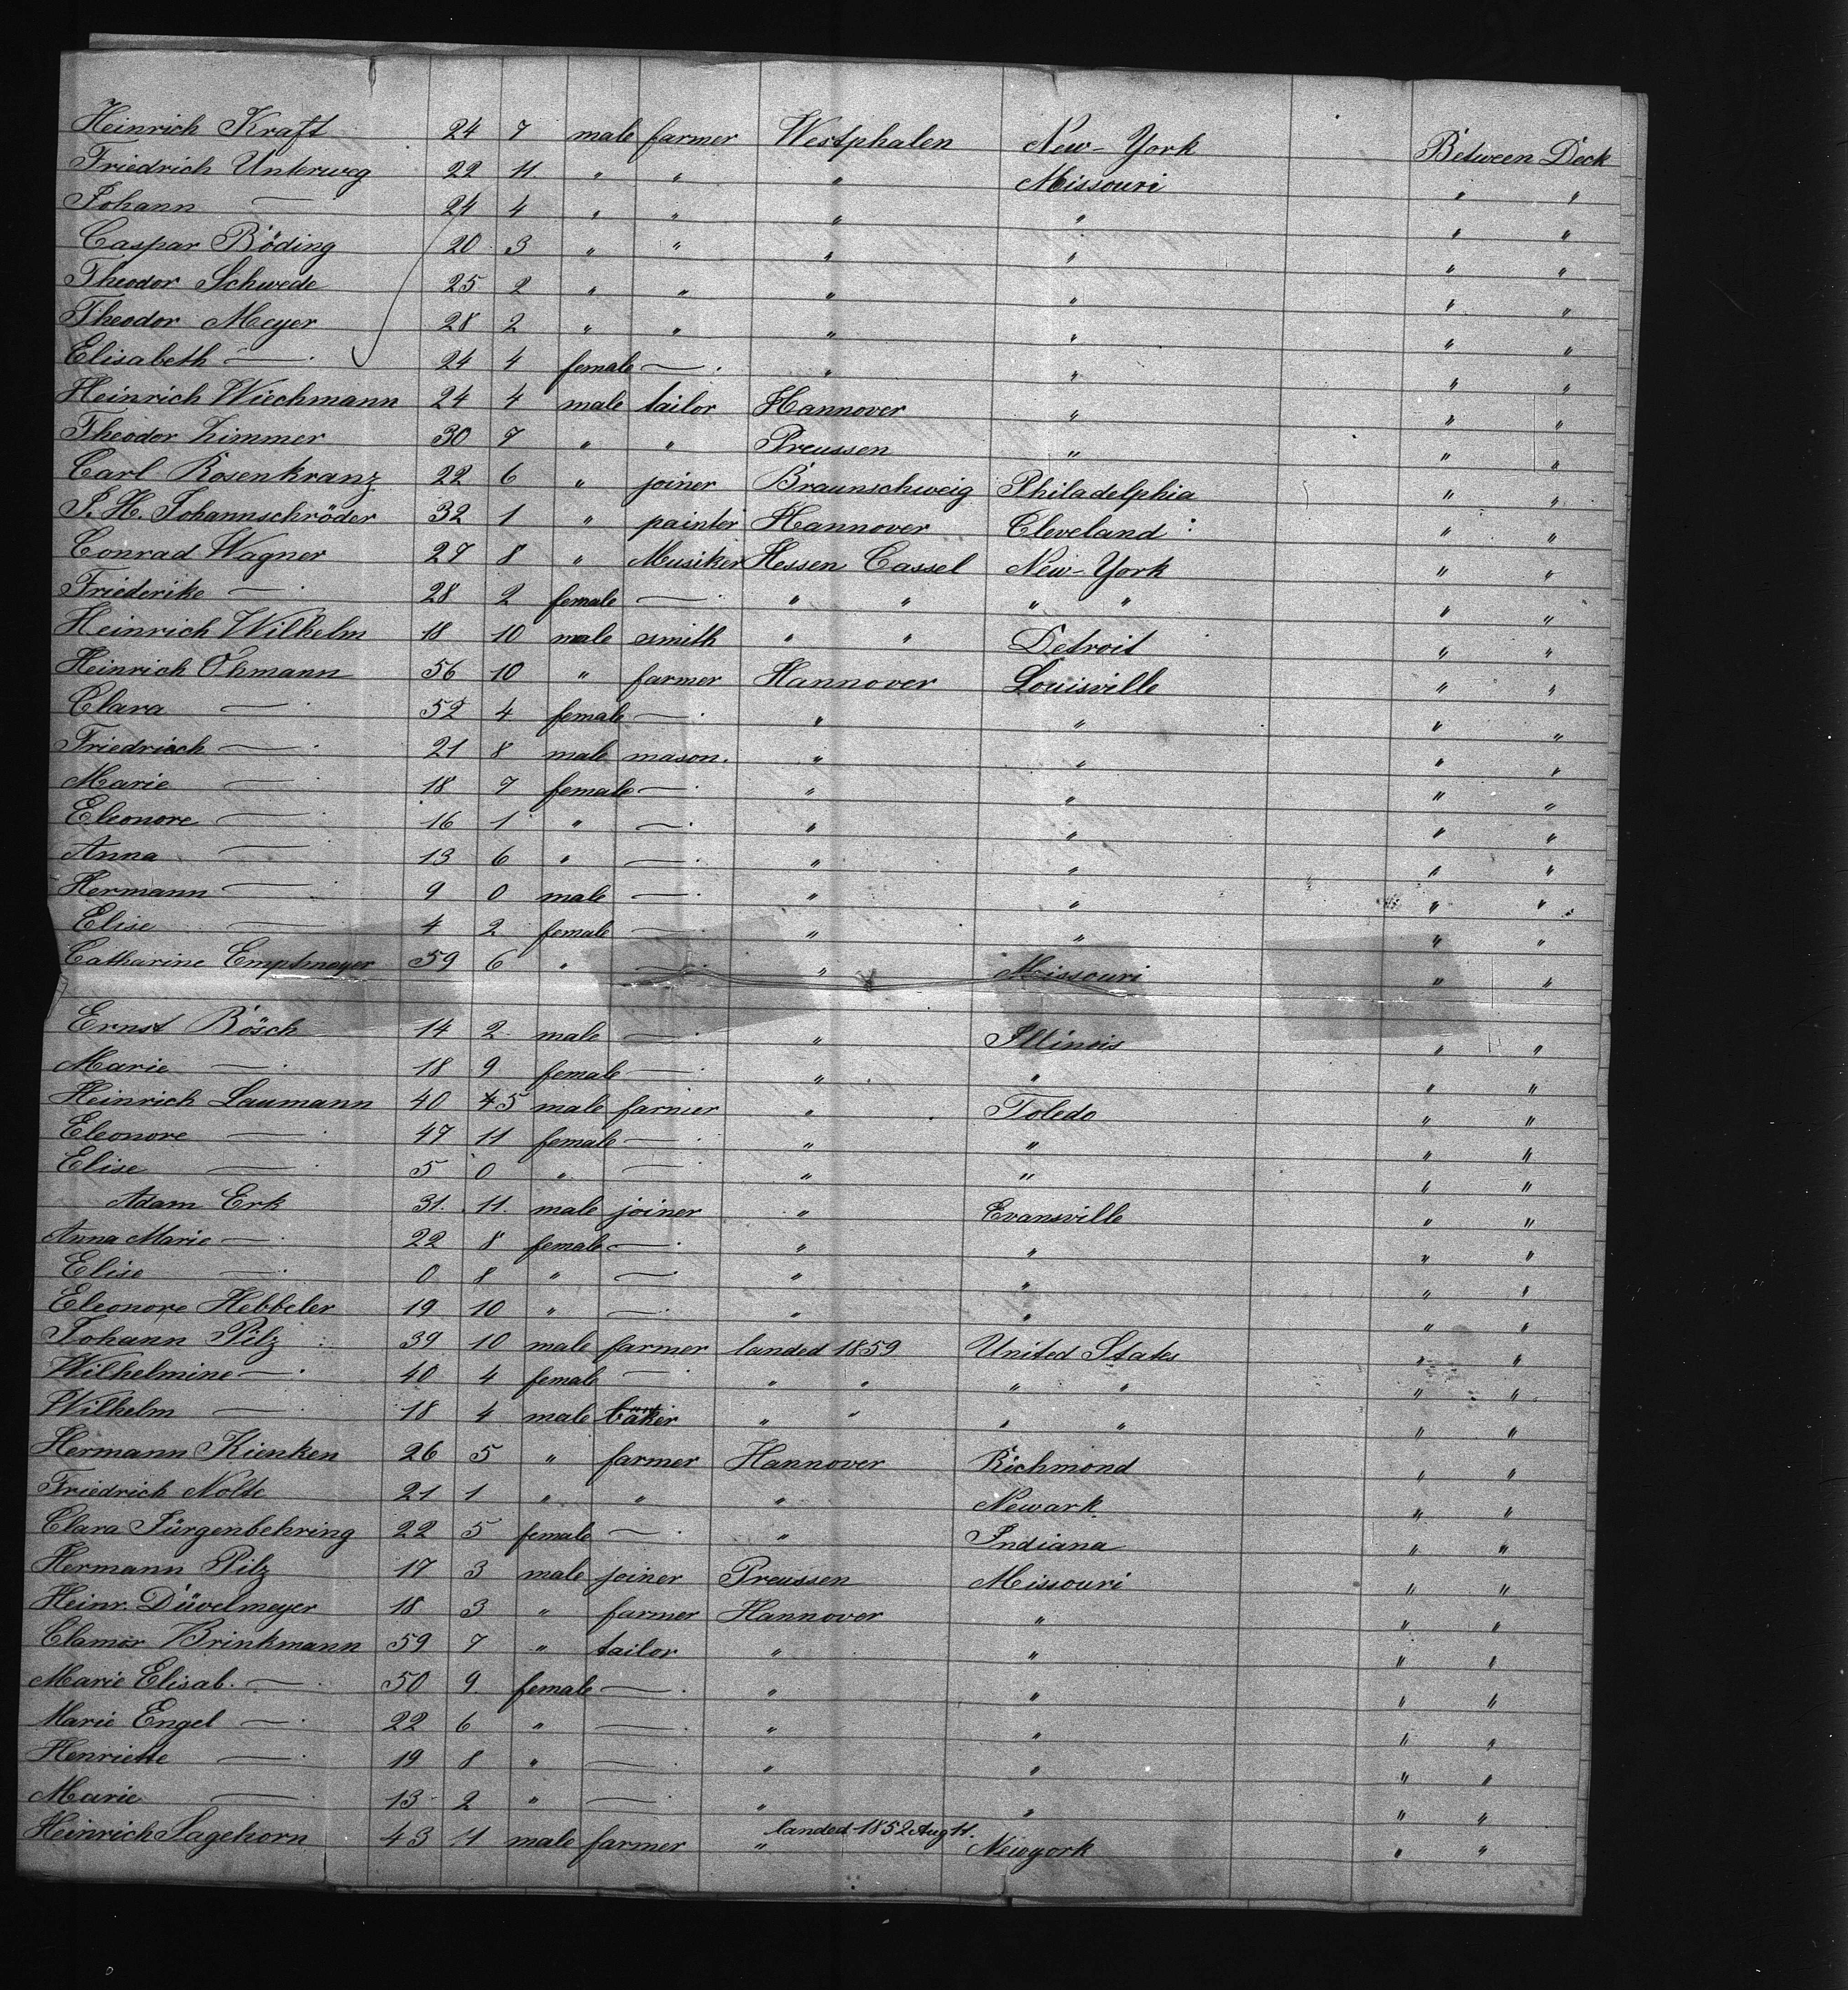 Heinrich Kraft 24 7 male farmer Westphalen New-York Between Deck
Friedrich Unterweg 22 11 " " " Missouri " "
Johann — 24 4 " " " " " "
Caspar Böding 20 3 " " " " " "
Theodor Schwede 25 2 " " " " " "
Theodor Meyer 28 2 " " " " " "
Elisabeth — 24 4 female — " " " "
Heinrich Wiechmann 24 4 male tailor Hannover " " "
Theodor Zimmer 30 7 " " Preussen " " "
Carl Rosenkranz 22 6 " joiner Braunschweig Philadelphia " "
P. H. Johannschröder 32 1 " painter Hannover Cleveland " "
Conrad Wagner 27 8 " Musiker Hessen Cassel New-York " "
Friederike — 28 2 female — " " " " " "
Heinrich Wilhelm 18 10 male smith " " Detroit " "
Heinrich Öhmann 56 10 " farmer Hannover Louisville " "
Clara — 52 4 female — " " " "
Friedrich — 21 8 male mason. " " " "
Marie — 18 7 female — " " " "
Eleonore — 16 1 " — " " " "
Anna — 13 6 " — " " " "
Hermann — 9 0 male — " " " "
Elise — 4 2 female — " " " "
Catharine Emptmeyer 59 6 " — " Missouri " "
Ernst Bösch 14 2 male — " Illinois " "
Marie — 18 9 female — " " " "
Heinrich Laumann 40 5 male farmer " Toledo " "
Eleonore — 47 11 female — " " " "
Elise — 5 0 " — " " " "
Adam Erk 31. 11. male joiner " Evansville " "
Anna Marie — 22 8 female — " " " "
Elise — 0 8 " — " " " "
Eleonore Hebbeler 19 10 " — " " " "
Johann Pilz 39 10 male farmer landed 1859 United States " "
Wilhelmine — 40 4 female — " " " " " "
Wilhelm — 18 4 male baker " " " " " "
Hermann Kienken 26 5 " farmer Hannover Richmond " "
Friedrich Nolte 21 1 " " " Newark " "
Clara Jürgenbehring 22 5 female — " Indiana " "
Hermann Pilz 17 3 male joiner Preussen Missouri " "
Heinr. Düvelmeyer 18 3 " farmer Hannover " " "
Clamor Brinkmann 59 7 " tailor " " " "
Marie Elisab. — 50 9 female — " " " "
Marie Engel — 22 6 " — " " " "
Henriette — 19 8 " — " " " "
Marie — 13 2 " — " " " "
Heinrich Sagehorn 43 11 male farmer " landed 1852 Aug 11. Newyork " "